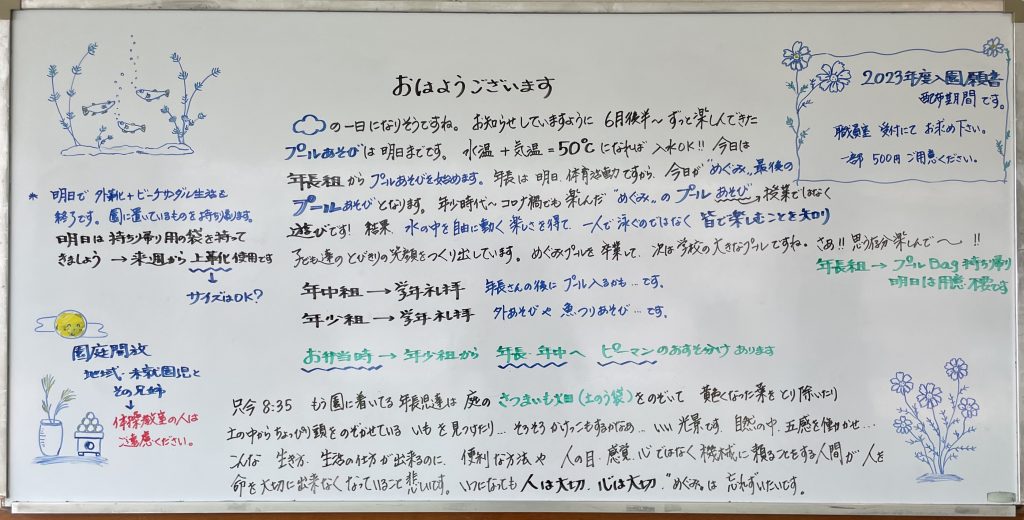 おはようございます
の一日になりそうですね。 お知らせしていますように 6月後半〜ずっと楽しんできた
プールあそびは 明日までです。 水温+気温=50℃になれば 入水OK!! 今日は
年長組からプールあそびを始めます。 年長は 明日、体育活動ですから、今日が "めぐみ" 最後の
プールあそびとなります。 年少時代〜コロナ禍でも 楽しんだ "めぐみ" の プールあそび。授業ではなく
遊びです! 結果、 水の中を自由に動く 楽しさを得て、一人で泳ぐのではなく 皆で楽しむことを知り
子ども達の とびきりの笑顔をつくり出しています。 めぐみプールを卒業して、次は学校の大きなプールですね。さあ!! 思う存分楽しんで〜 !!
年長組 → プールBag持ち帰り
明日は用意不要です
年中組 → 学年礼拝 年長さんの後に プール入るかも…です。
年少組 → 学年礼拝 外あそびや 魚つりあそび…です。
お弁当時 → 年少組から 年長・年中へ ピーマンのおすそ分けあります
只今 8:35 もう園に着いてる 年長児達は 庭の さつまいも畑(土のう袋)をのぞいて 黄色くなった葉をとり除いたり
土の中からちょっぴり頭をのぞかせている いもを見つけたり… そろそろかけっこもするかなぁ… いい光景です。 自然の中、五感を働かせ…
こんな 生き方、生活の仕方が出来るのに、 便利な方法や 人の目・感覚、心ではなく 機械に頼ることをする人間が 人を
命を大切に出来なくなっていること 悲しいです。 いつになっても 人は大切、心は大切、"めぐみ" は 忘れずいたいです。
2023年度入園願書
配布期間です。
職員室 受付にて お求め下さい。
一部 500円 ご用意ください。
* 明日で 外靴+ビーチサンダル生活を
終了です。 園に置いているものを持ち帰ります。
明日は 持ち帰り用の袋を持って
きましょう → 来週から 上靴 使用です
↓
サイズはOK?
園庭開放
地域・未就園児と
その兄姉
↓
体操教室の人は
ご遠慮ください。